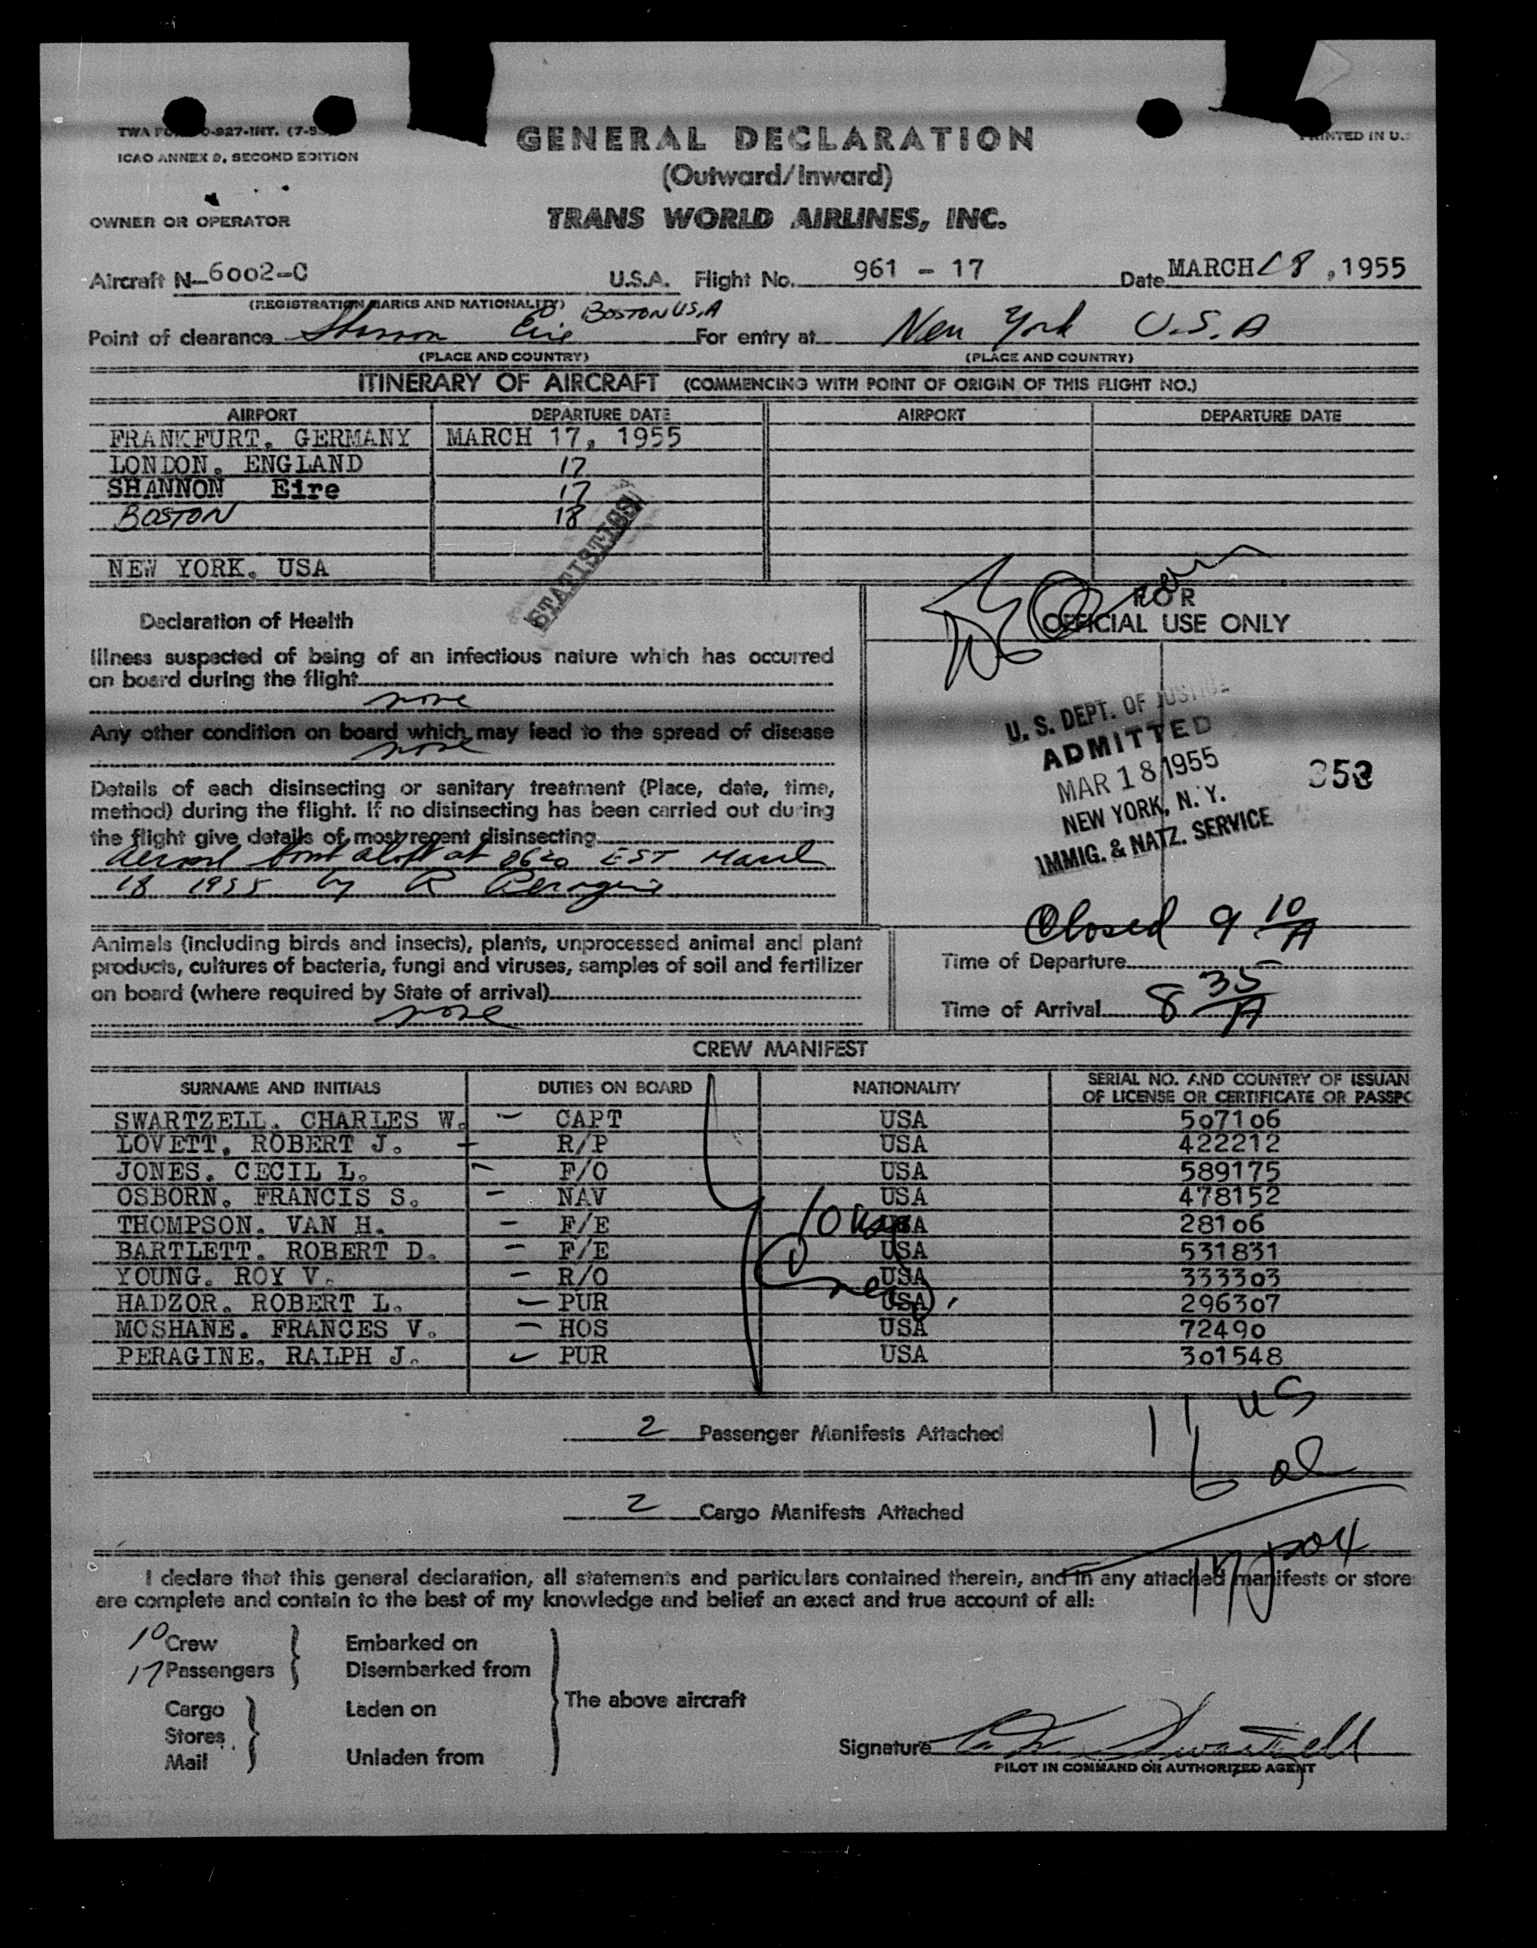 GENERAL DECLARATION
(Outward/Inward)
ICAO ANNEX 9, SECOND EDITION
OWNER OR OPERATOR
TRANS WORLD AIRLINES, INC.
Aircraft N 6002-C U.S.A. Flight No. 961 - 17 Date MARCH 18, 1955
(REGISTRATION MARKS AND NATIONALITY)
BOSTON U.S.A
Point of clearance Shannon Eire For entry at New York U.S.A
(PLACE AND COUNTRY) (PLACE AND COUNTRY)
ITINERARY OF AIRCRAFT (COMMENCING WITH POINT OF ORIGIN OF THIS FLIGHT NO.)
AIRPORT DEPARTURE DATE AIRPORT DEPARTURE DATE
FRANKFURT, GERMANY MARCH 17, 1955
LONDON, ENGLAND 17
SHANNON Eire 17
BOSTON 18
NEW YORK, USA
STATISTICS
Declaration of Health
Illness suspected of being of an infectious nature which has occurred
on board during the flight
none
Any other condition on board which may lead to the spread of disease
none
Details of each disinsecting or sanitary treatment (Place, date, time,
method) during the flight. If no disinsecting has been carried out during
the flight give details of most recent disinsecting
Aerosol bomb aloft at 0620 EST March
18 1955 by R Peragine
FOR
OFFICIAL USE ONLY
U. S. DEPT. OF JUSTICE
ADMITTED
MAR 18 1955
NEW YORK, N. Y.
IMMIG. & NATZ. SERVICE
353
Closed 9 10/A
Animals (including birds and insects), plants, unprocessed animal and plant
products, cultures of bacteria, fungi and viruses, samples of soil and fertilizer
on board (where required by State of arrival)
none
Time of Departure
Time of Arrival 8 35/A
CREW MANIFEST
SURNAME AND INITIALS DUTIES ON BOARD NATIONALITY SERIAL NO. AND COUNTRY OF ISSUAN
OF LICENSE OR CERTIFICATE OR PASSPO
SWARTZELL, CHARLES W. - CAPT USA 507106
LOVETT, ROBERT J. R/P USA 422212
JONES, CECIL L. - F/O USA 589175
OSBORN, FRANCIS S. - NAV USA 478152
THOMPSON, VAN H. - F/E USA 28106
BARTLETT, ROBERT D. - F/E USA 531831
YOUNG, ROY V. - R/O USA 333303
HADZOR, ROBERT L. - PUR USA 296307
MCSHANE, FRANCES V. - HOS USA 72490
PERAGINE, RALPH J. PUR USA 301548
10
11 US
6 al
17
2 Passenger Manifests Attached
2 Cargo Manifests Attached
I declare that this general declaration, all statements and particulars contained therein, and in any attached manifests or store
are complete and contain to the best of my knowledge and belief an exact and true account of all:
10 Crew Embarked on
17 Passengers Disembarked from
The above aircraft
Cargo Laden on
Stores
Mail Unladen from
Signature C W Swartzell
PILOT IN COMMAND OR AUTHORIZED AGENT